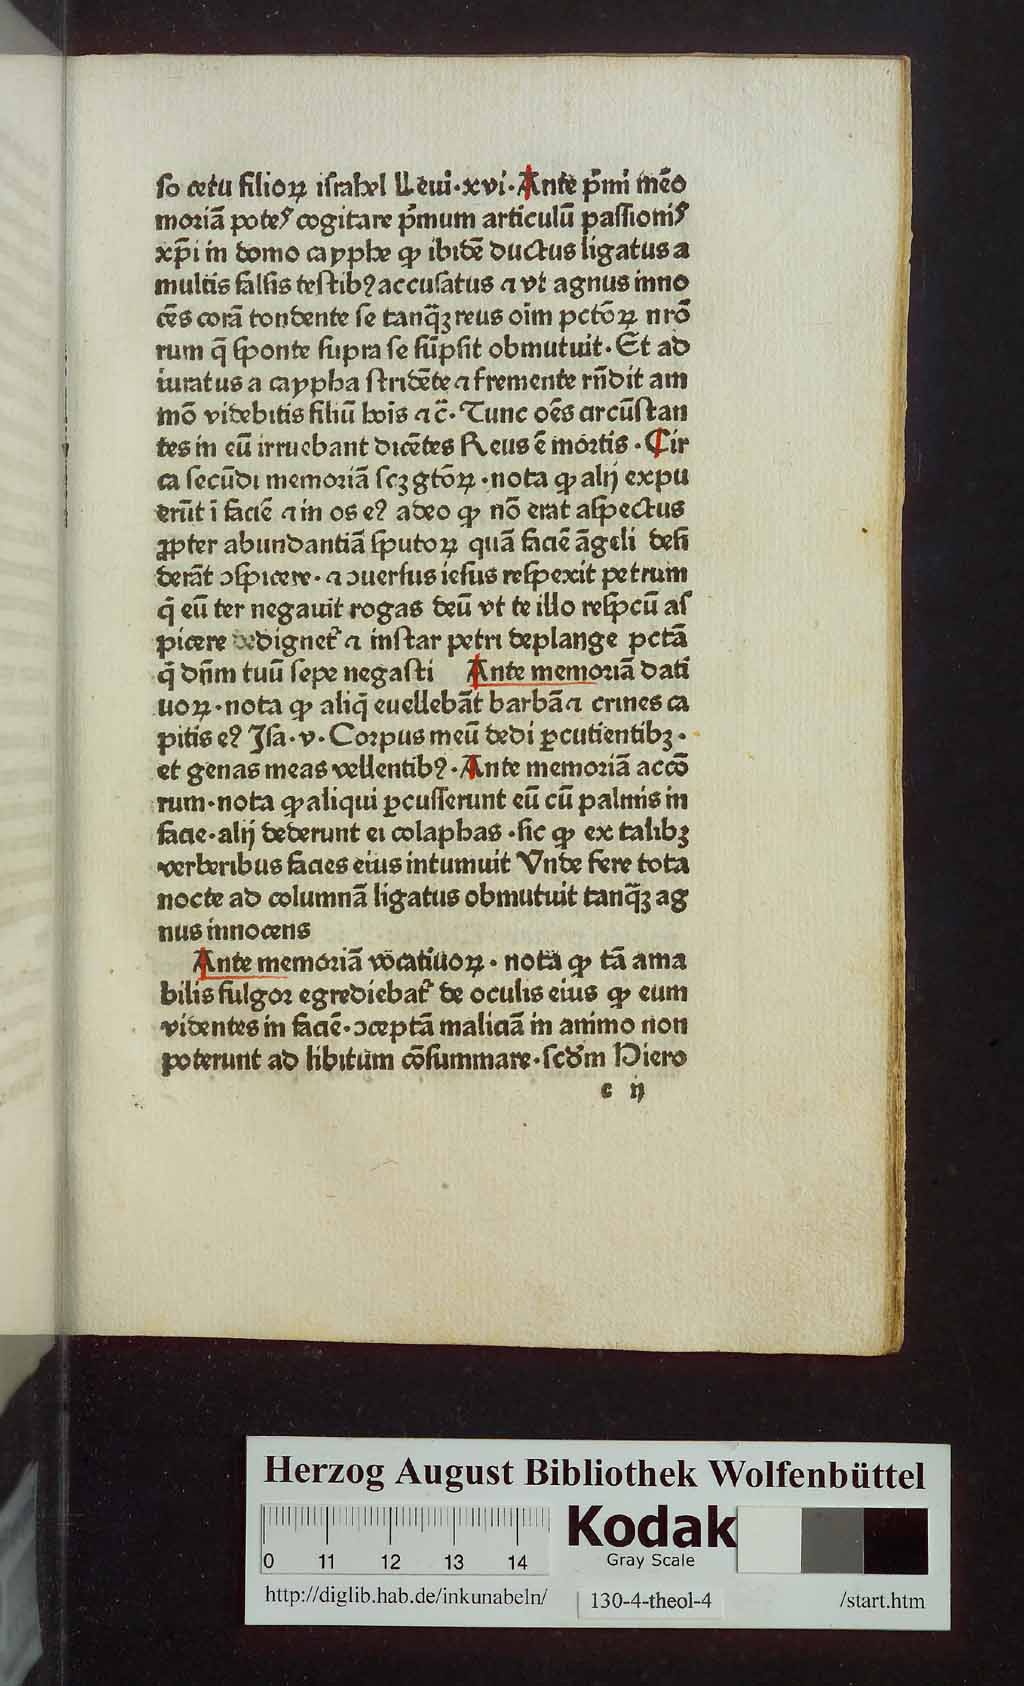 so cetu filioꝝ israhel Leui·xvi·Ante p̄mi mēo
moriā potes cogitare p̄mum articulū passionis
xp̄i in domo cayphe ꝙ ibidē ductus ligatus a
multis falsis testibꝰ accusatus ⁊ vt agnus inno
cēs corā tondente se tanq̄ꝫ reus oīm pctōꝝ nrō
rum q̄ sponte supra se sūpsit obmutuit·Et ad
iuratus a caypha stridēte ⁊ fremente rn̄dit am
mō videbitis filiū hoīs ⁊ c̄·Tunc oēs arcūstan
tes in eū irruebant dicētes Reus ē mortis·Cir
ca secūdi memoriā scꝫ gtōꝝ·nota ꝙ alij expu
erūt ī faciē ⁊ in os eꝰ adeo ꝙ nō erat aspectus
ꝓpter abundantiā sputoꝝ quā faciē āgeli desi
derāt ↄspicere·⁊ ↄuersus iesus respexit petrum
q̄ eū ter negauit rogas deū vt te illo respcū as
picere dedignet̄ ⁊ instar petri deplange pctā
q̄ dn̄m tuū sepe negasti Ante memoriā dati
uoꝝ·nota ꝙ aliq̄ euellebāt barbā ⁊ crines ca
pitis eꝰ Jsa·v·Corpus meū dedi ꝑcutientibꝫ·
et genas meas vellentibꝰ·Ante memoriā accō
rum·nota ꝙ aliqui ꝑcusserunt eū cū palmis in
facie·alij dederunt ei colaphas·sic ꝙ ex talibꝫ
verberibus facies eius intumuit Vnde fere tota
nocte ad columnā ligatus obmutuit tanq̄ꝫ ag
nus innocens
Ante memoriā vocatiuoꝝ·nota ꝙ tā ama
bilis fulgor egrediebat̄ de oculis eius ꝙ eum
videntes in faciē·ↄceptā maliciā in animo non
poterunt ad libitum cōsummare·scd̄m Hiero
c ij
Herzog August Bibliothek Wolfenbüttel
0 11 12 13 14
Kodak
Gray Scale
http://diglib.hab.de/inkunabeln/ 130-4-theol-4 /start.htm